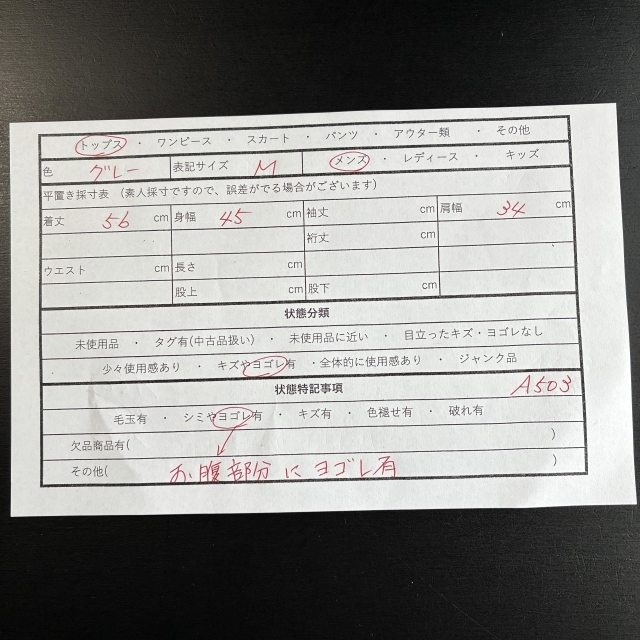 トップス ・ ワンピース ・ スカート ・ パンツ ・ アウター類 ・ その他
色 グレー 表記サイズ M メンズ ・ レディース ・ キッズ
平置き採寸表 (素人採寸ですので、誤差がでる場合がございます)
着丈 56 cm 身幅 45 cm 袖丈 cm 肩幅 34 cm
裄丈 cm
ウエスト cm 長さ cm
股上 cm 股下 cm
状態分類
未使用品 ・ タグ有(中古品扱い) ・ 未使用品に近い ・ 目立ったキズ・ヨゴレなし
少々使用感あり ・ キズやヨゴレ有 ・全体的に使用感あり ・ ジャンク品
状態特記事項 A503
毛玉有 ・ シミやヨゴレ有 ・ キズ有 ・ 色褪せ有 ・ 破れ有
欠品商品有( )
その他( お腹部分にヨゴレ有 )